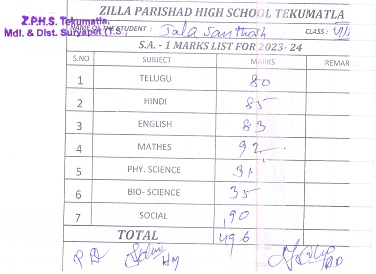 ZILLA PARISHAD HIGH SCHOOL TEKUMATLA
Z.P.H.S. Tekumatla,
Mdl. & Dist. Suryapet (T.S.)
NAME OF THE STUDENT : Jala Santhosh CLASS : VIII
S.A. - 1 MARKS LIST FOR 2023- 24
S.NO SUBJECT MARKS REMAR
1 TELUGU 80
2 HINDI 85
3 ENGLISH 83
4 MATHES 92
5 PHY. SCIENCE 31
6 BIO- SCIENCE 35
7 SOCIAL 90
TOTAL 496